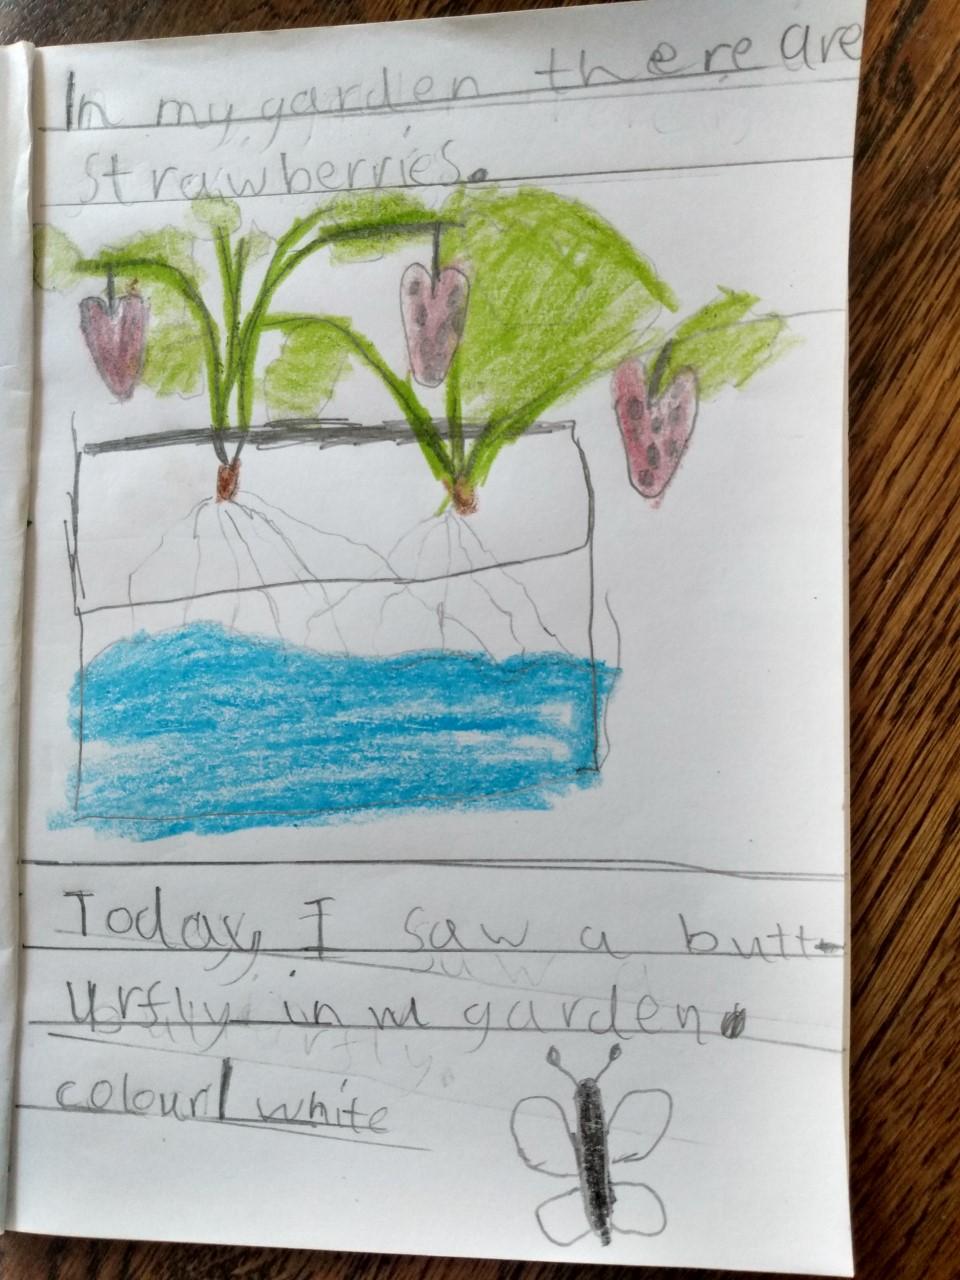 In my garden there are
strawberries.
Today, I saw a butt-
urfly in m garden.
colour white